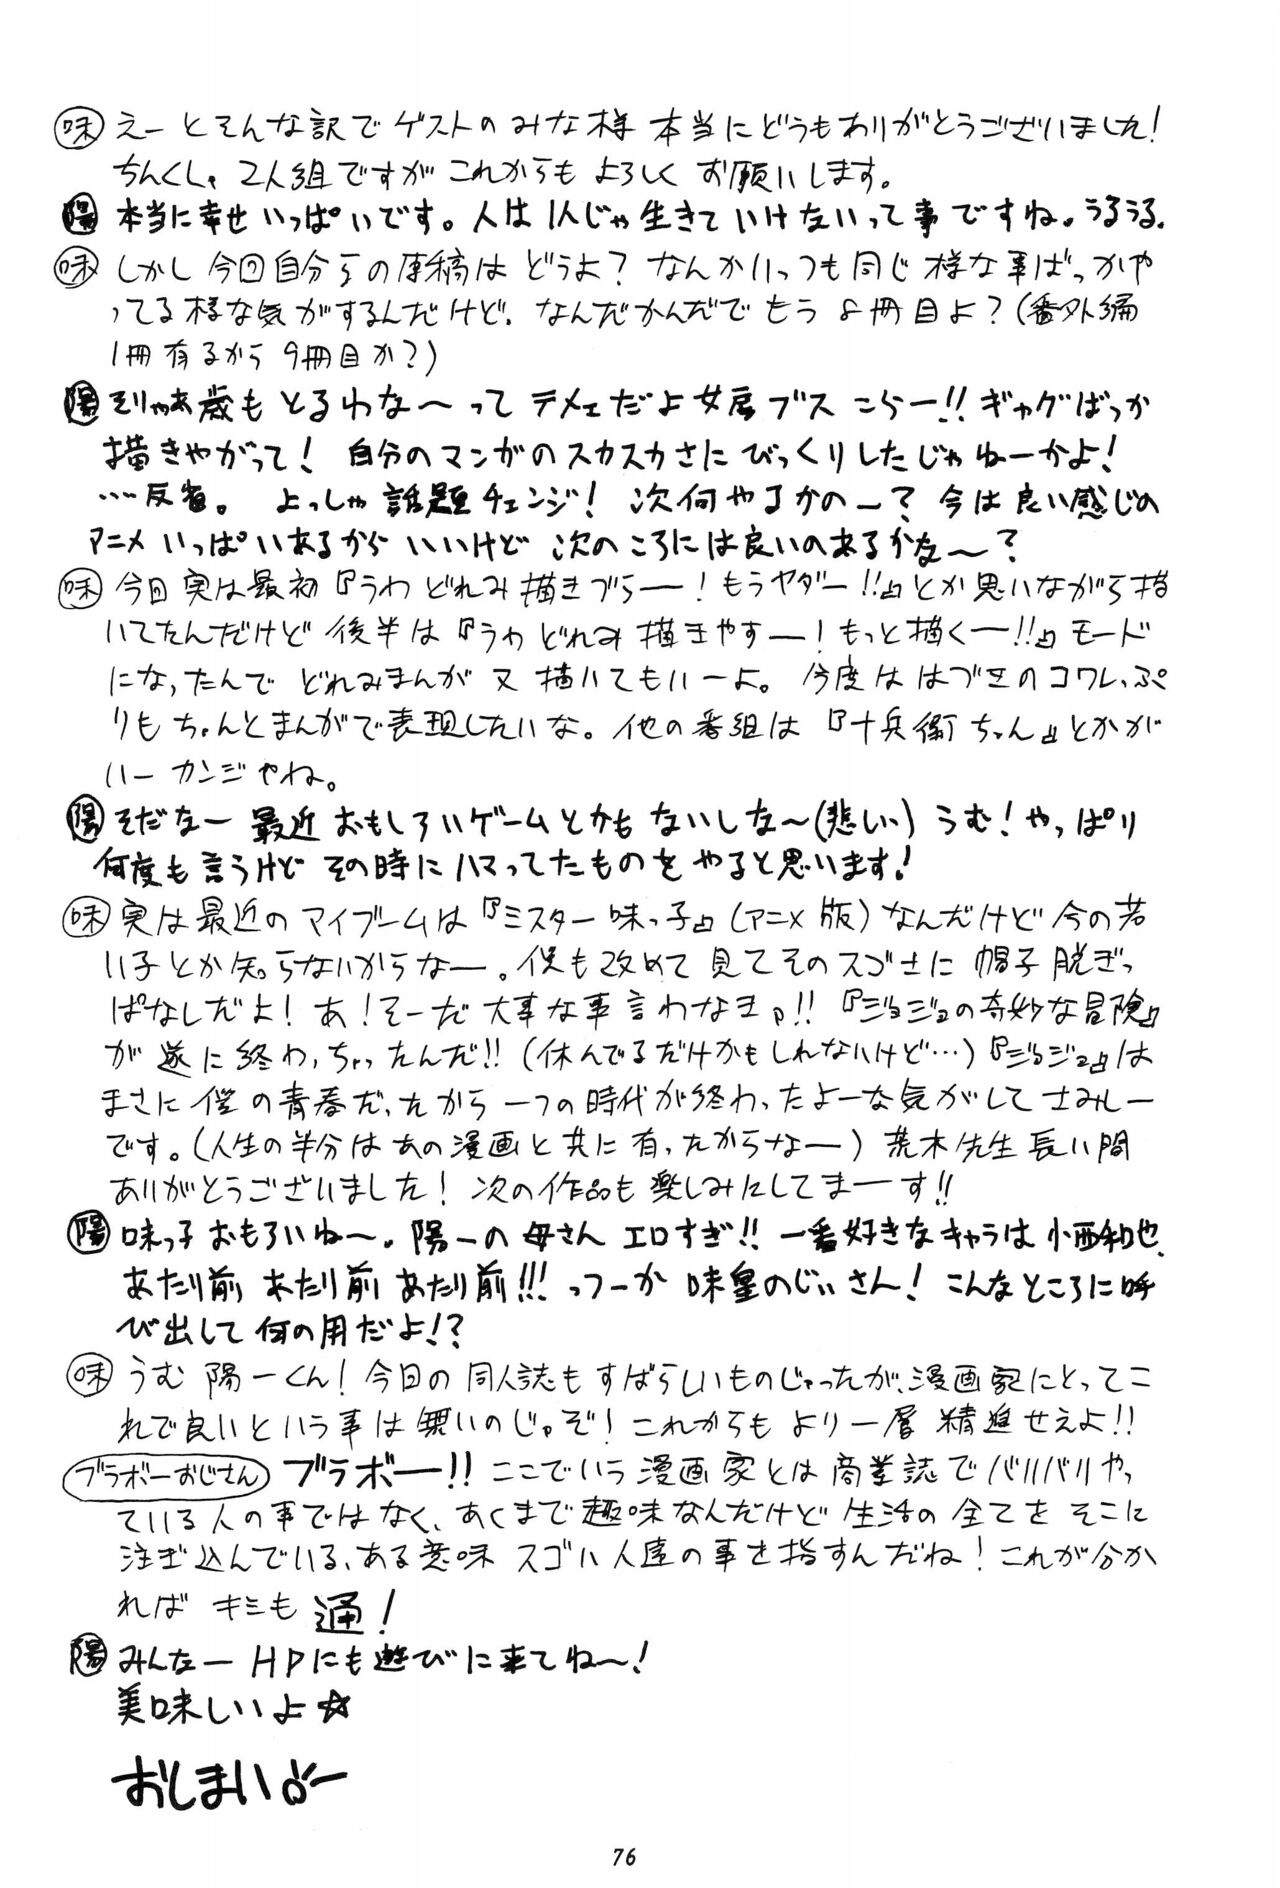 味 えーとそんな訳でゲストのみな様 本当にどうもありがとうございました!
ちんくしゃ2人組ですがこれからもよろしくお願いします。
陽 本当に幸せいっぱいです。人は1人じゃ生きていけないって事ですね。うるうる。
味 しかし今回自分らの原稿はどうよ? なんかいっつも同じ様な事ばっかや
ってる様な気がするんだけど。なんだかんだでもう8冊目よ?(番外編
1冊有るから9冊目か?)
陽 そりゃあ歳もとるわな〜ってテメェだよ女房ブスこらー!!ギャグばっか
描きやがって! 自分のマンガのスカスカさにびっくりしたじゃねーかよ!
…反省。 よっしゃ話題チェンジ! 次何やるかのー? 今は良い感じの
アニメいっぱいあるからいいけど次のころには良いのあるかな〜?
味 今回実は最初『うわどれみ描きづらー!もうヤダー!!』とか思いながら描
いてたんだけど後半は『うわどれみ描きやすー!もっと描くー!!』モード
になったんでどれみまんが又描いてもいーよ。今度ははづきのコワレっぷ
りもちゃんとまんがで表現したいな。他の番組は『十兵衛ちゃん』とかが
いーカンジやね。
陽 そだなー最近おもしろいゲームとかもないしな〜(悲しい)うむ!やっぱり
何度も言うけどその時にハマってたものをやると思います!
味 実は最近のマイブームは『ミスター味っ子』(アニメ版)なんだけど今の若
い子とか知らないからなー。僕も改めて見てそのスゴさに帽子脱ぎっ
ぱなしだよ!あ!そーだ大事な事言わなきゃ!!『ジョジョの奇妙な冒険』
が遂に終わっちゃったんだ!!(休んでるだけかもしれないけど…)『ジョジョ』は
まさに僕の青春だったから一つの時代が終わったよーな気がしてさみしー
です。(人生の半分はあの漫画と共に有ったからなー)荒木先生長い間
ありがとうございました!次の作品も楽しみにしてまーす!!
陽 味っ子おもろいね〜。陽一の母さんエロすぎ!!一番好きなキャラは小西和也。
あたり前あたり前あたり前!!!っつーか味皇のじぃさん!こんなところに呼
び出して何の用だよ!?
味 うむ陽一くん!今日の同人誌もすばらしいものじゃったが、漫画家にとってこ
れで良いという事は無いのじゃぞ!これからもより一層精進せえよ!!
ブラボーおじさん ブラボー!!ここでいう漫画家とは商業誌でバリバリやっ
ている人の事ではなく、あくまで趣味なんだけど生活の全てをそこに
注ぎ込んでいる、ある意味スゴい人達の事を指すんだね!これが分か
ればキミも通!
陽 みんなーHPにも遊びに来てね〜!
美味しいよ☆
おしまい
76